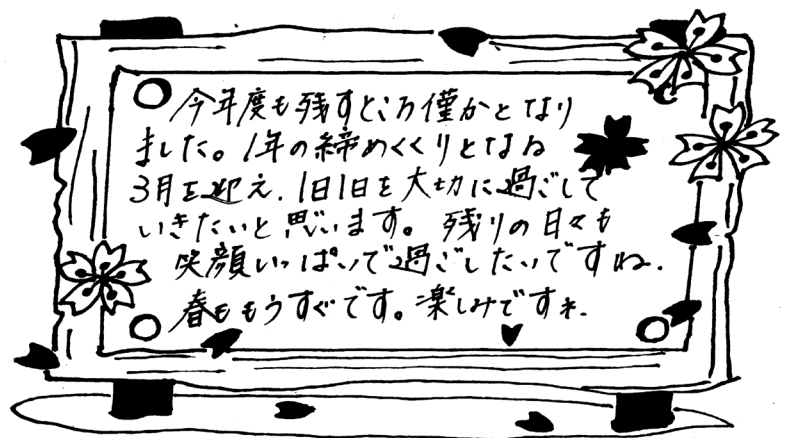 今年度も残すところ僅かとなり
ました。1年の締めくくりとなる
3月を迎え、1日1日を大切に過ごして
いきたいと思います。残りの日々も
笑顔いっぱいで過ごしたいですね.
春ももうすぐです。楽しみですネ.